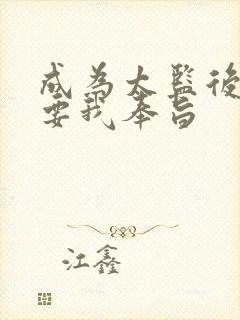 成为太监後
要我奉旨
江鑫